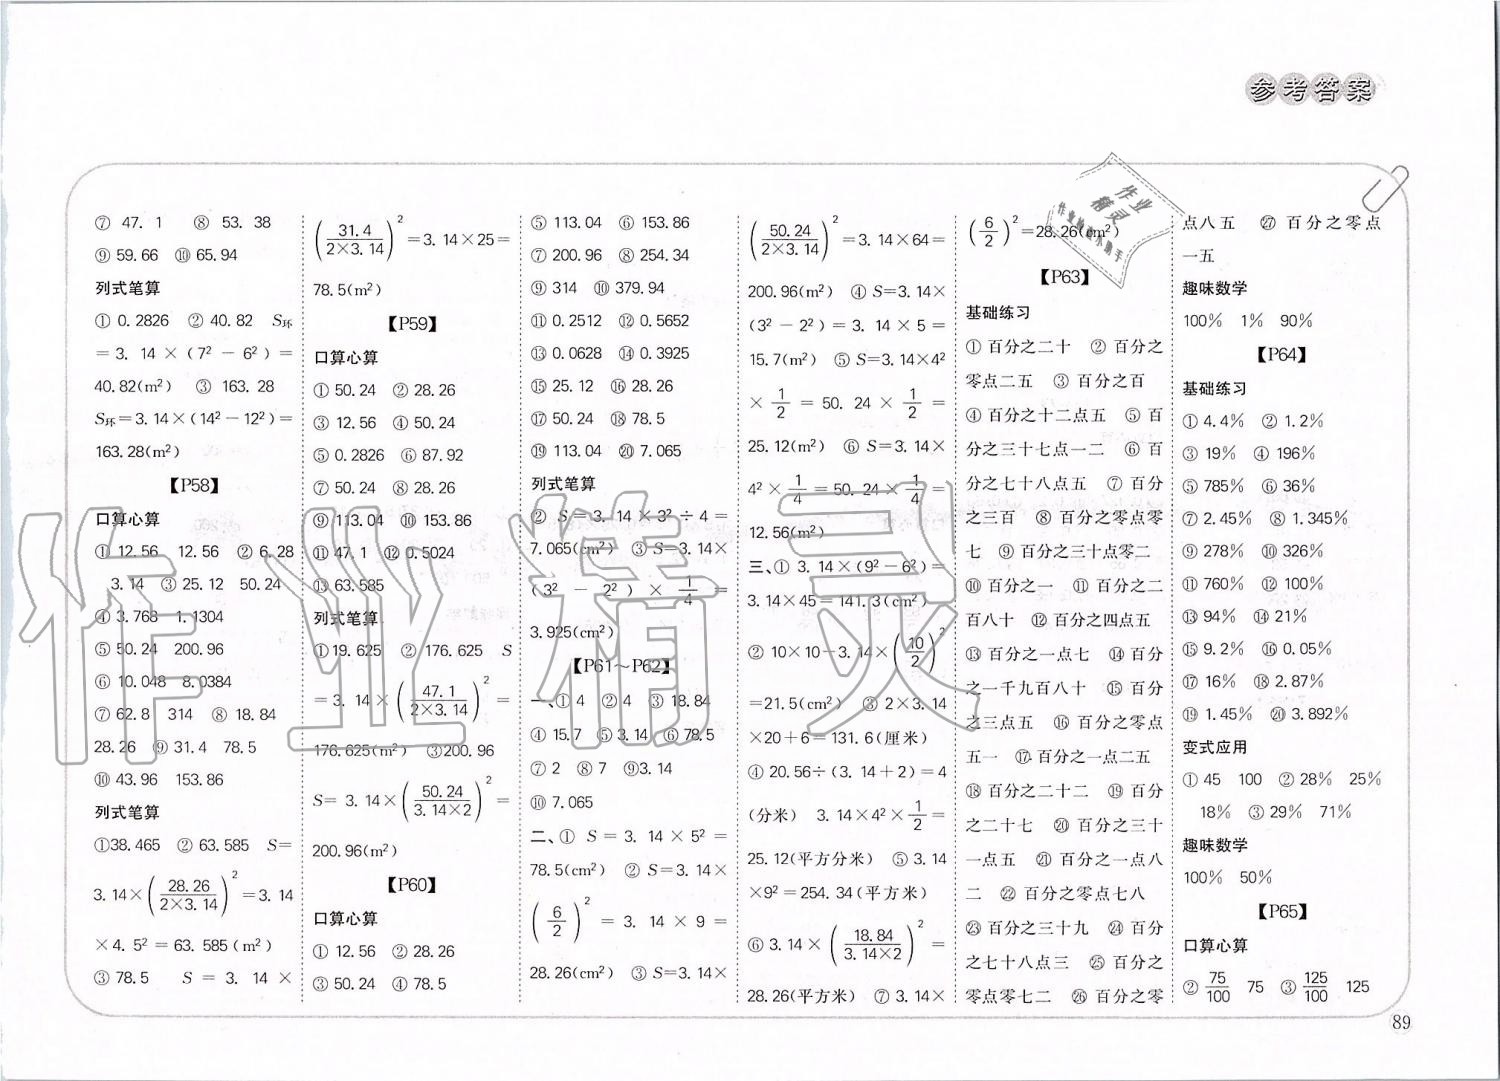 参考答案
⑦ 47.1 ⑧ 53.38
⑨ 59.66 ⑩ 65.94
列式笔算
① 0.2826 ② 40.82 S环
=3.14×(7²-6²)=
40.82(m²) ③ 163.28
S环=3.14×(14²-12²)=
163.28(m²)
【P58】
口算心算
① 12.56 12.56 ② 6.28
3.14 ③ 25.12 50.24
④ 3.768 1.1304
⑤ 50.24 200.96
⑥ 10.048 8.0384
⑦ 62.8 314 ⑧ 18.84
28.26 ⑨ 31.4 78.5
⑩ 43.96 153.86
列式笔算
①38.465 ② 63.585 S=
3.14×(28.26/(2×3.14))²=3.14
×4.5²=63.585(m²)
③ 78.5 S=3.14×
(31.4/(2×3.14))²=3.14×25=
78.5(m²)
【P59】
口算心算
① 50.24 ② 28.26
③ 12.56 ④ 50.24
⑤ 0.2826 ⑥ 87.92
⑦ 50.24 ⑧ 28.26
⑨ 113.04 ⑩ 153.86
⑪ 47.1 ⑫ 0.5024
⑬ 63.585
列式笔算
①19.625 ② 176.625 S
=3.14×(47.1/(2×3.14))²=
176.625(m²) ③200.96
S=3.14×(50.24/(3.14×2))²=
200.96(m²)
【P60】
口算心算
① 12.56 ② 28.26
③ 50.24 ④ 78.5
⑤ 113.04 ⑥ 153.86
⑦ 200.96 ⑧ 254.34
⑨ 314 ⑩ 379.94
⑪ 0.2512 ⑫ 0.5652
⑬ 0.0628 ⑭ 0.3925
⑮ 25.12 ⑯ 28.26
⑰ 50.24 ⑱ 78.5
⑲ 113.04 ⑳ 7.065
列式笔算
② S=3.14×3²÷4=
7.065(cm²) ③ S=3.14×
(3²-2²)×1/4=
3.925(cm²)
【P61～P62】
一、①4 ②4 ③18.84
④ 15.7 ⑤3.14 ⑥78.5
⑦ 2 ⑧ 7 ⑨3.14
⑩ 7.065
二、① S=3.14×5²=
78.5(cm²) ② S=3.14×
(6/2)²=3.14×9=
28.26(cm²) ③ S=3.14×
(50.24/(2×3.14))²=3.14×64=
200.96(m²) ④ S=3.14×
(3²-2²)=3.14×5=
15.7(m²) ⑤ S=3.14×4²
×1/2=50.24×1/2=
25.12(m²) ⑥ S=3.14×
4²×1/4=50.24×1/4=
12.56(m²)
三、① 3.14×(9²-6²)=
3.14×45=141.3(cm²)
② 10×10-3.14×(10/2)²
=21.5(cm²) ③ 2×3.14
×20+6=131.6(厘米)
④ 20.56÷(3.14+2)=4
(分米) 3.14×4²×1/2=
25.12(平方分米) ⑤ 3.14
×9²=254.34(平方米)
⑥ 3.14×(18.84/(3.14×2))²=
28.26(平方米) ⑦ 3.14×
(6/2)²=28.26(cm²)
【P63】
基础练习
① 百分之二十 ② 百分之
零点二五 ③ 百分之百
④ 百分之十二点五 ⑤ 百
分之三十七点一二 ⑥ 百
分之七十八点五 ⑦ 百分
之三百 ⑧ 百分之零点零
七 ⑨ 百分之三十点零二
⑩ 百分之一 ⑪ 百分之二
百八十 ⑫ 百分之四点五
⑬ 百分之一点七 ⑭ 百分
之一千九百八十 ⑮ 百分
之三点五 ⑯ 百分之零点
五一 ⑰ 百分之一点二五
⑱ 百分之二十二 ⑲ 百分
之二十七 ⑳ 百分之三十
一点五 ㉑ 百分之一点八
二 ㉒ 百分之零点七八
㉓ 百分之三十九 ㉔ 百分
之七十八点三 ㉕ 百分之
零点零七二 ㉖ 百分之零
点八五 ㉗ 百分之零点
一五
趣味数学
100% 1% 90%
【P64】
基础练习
① 4.4% ② 1.2%
③ 19% ④ 196%
⑤ 785% ⑥ 36%
⑦ 2.45% ⑧ 1.345%
⑨ 278% ⑩ 326%
⑪ 760% ⑫ 100%
⑬ 94% ⑭ 21%
⑮ 9.2% ⑯ 0.05%
⑰ 16% ⑱ 2.87%
⑲ 1.45% ⑳ 3.892%
变式应用
① 45 100 ② 28% 25%
18% ③ 29% 71%
趣味数学
100% 50%
【P65】
口算心算
② 75/100 75 ③ 125/100 125
89
作业精灵
作业
精灵